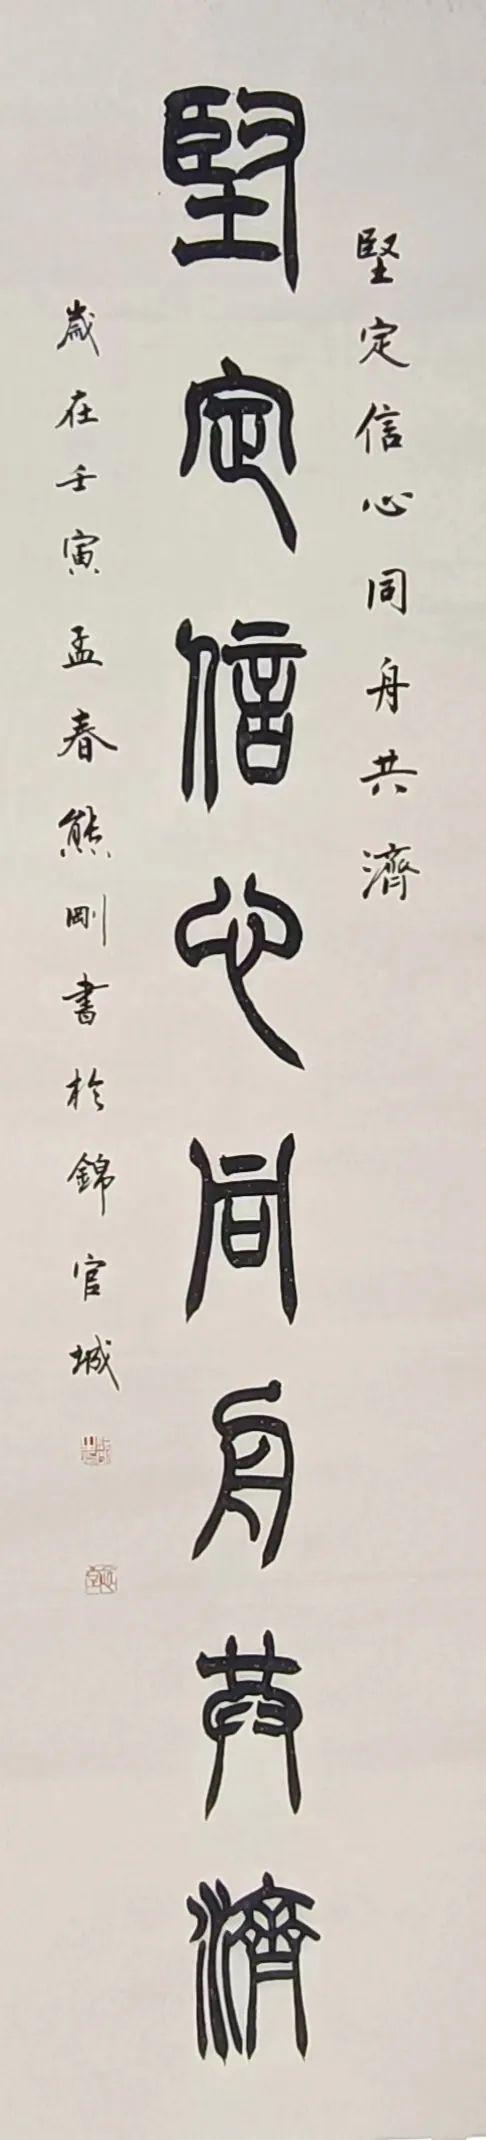 堅定信心同舟共濟
堅定信心同舟共濟
歲在壬寅孟春熊剛書於錦官城